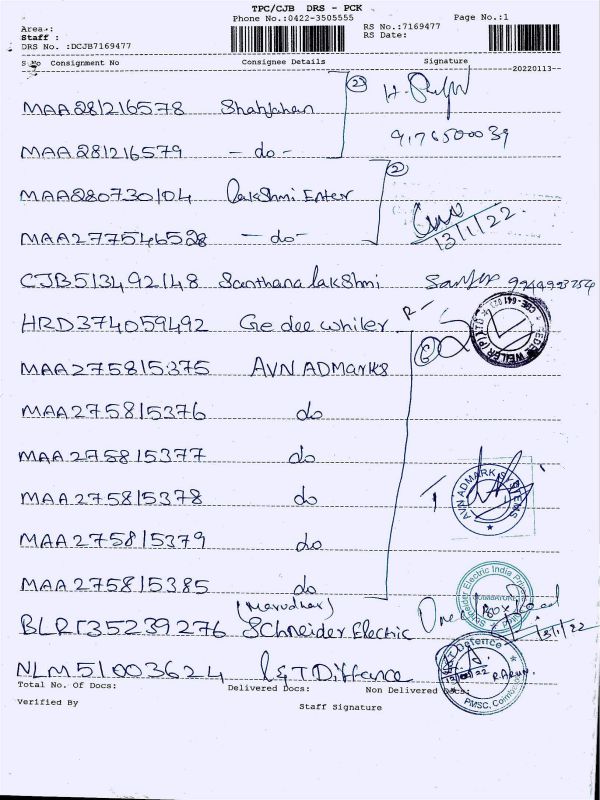 TPC/CJB DRS - PCK
Phone No.:0422-3505555 Page No.:1
Area.:
Staff :
DRS No. :DCJB7169477
RS No.:7169477
RS Date:
S.No Consignment No Consignee Details Signature
20220113
MAA281216578 Shahjahan (2)
MAA281216579 - do - 9176500039
MAA280730104 Lakshmi Enter (2)
MAA277546528 - do - 13/1/22.
CJB513492148 Santhana lakshmi
HRD374059492 Ge dee whiler R -
MAA275815375 AVN ADMarks (6)
MAA275815376 do
MAA275815377 do
MAA275815378 do
AVN ADMARK SYSTEMS
MAA275815379 do
MAA275815385 do
Schneider Electric India
(Marudhar)
BLR135239276 Schneider Electric One Box 13/1/22
NLM51003624 L&T Diffance
Defence
R.ARUN.
PMSC, Coimbatore
Total No. Of Docs: Delivered Docs: Non Delivered Docs:
Verified By Staff Signature